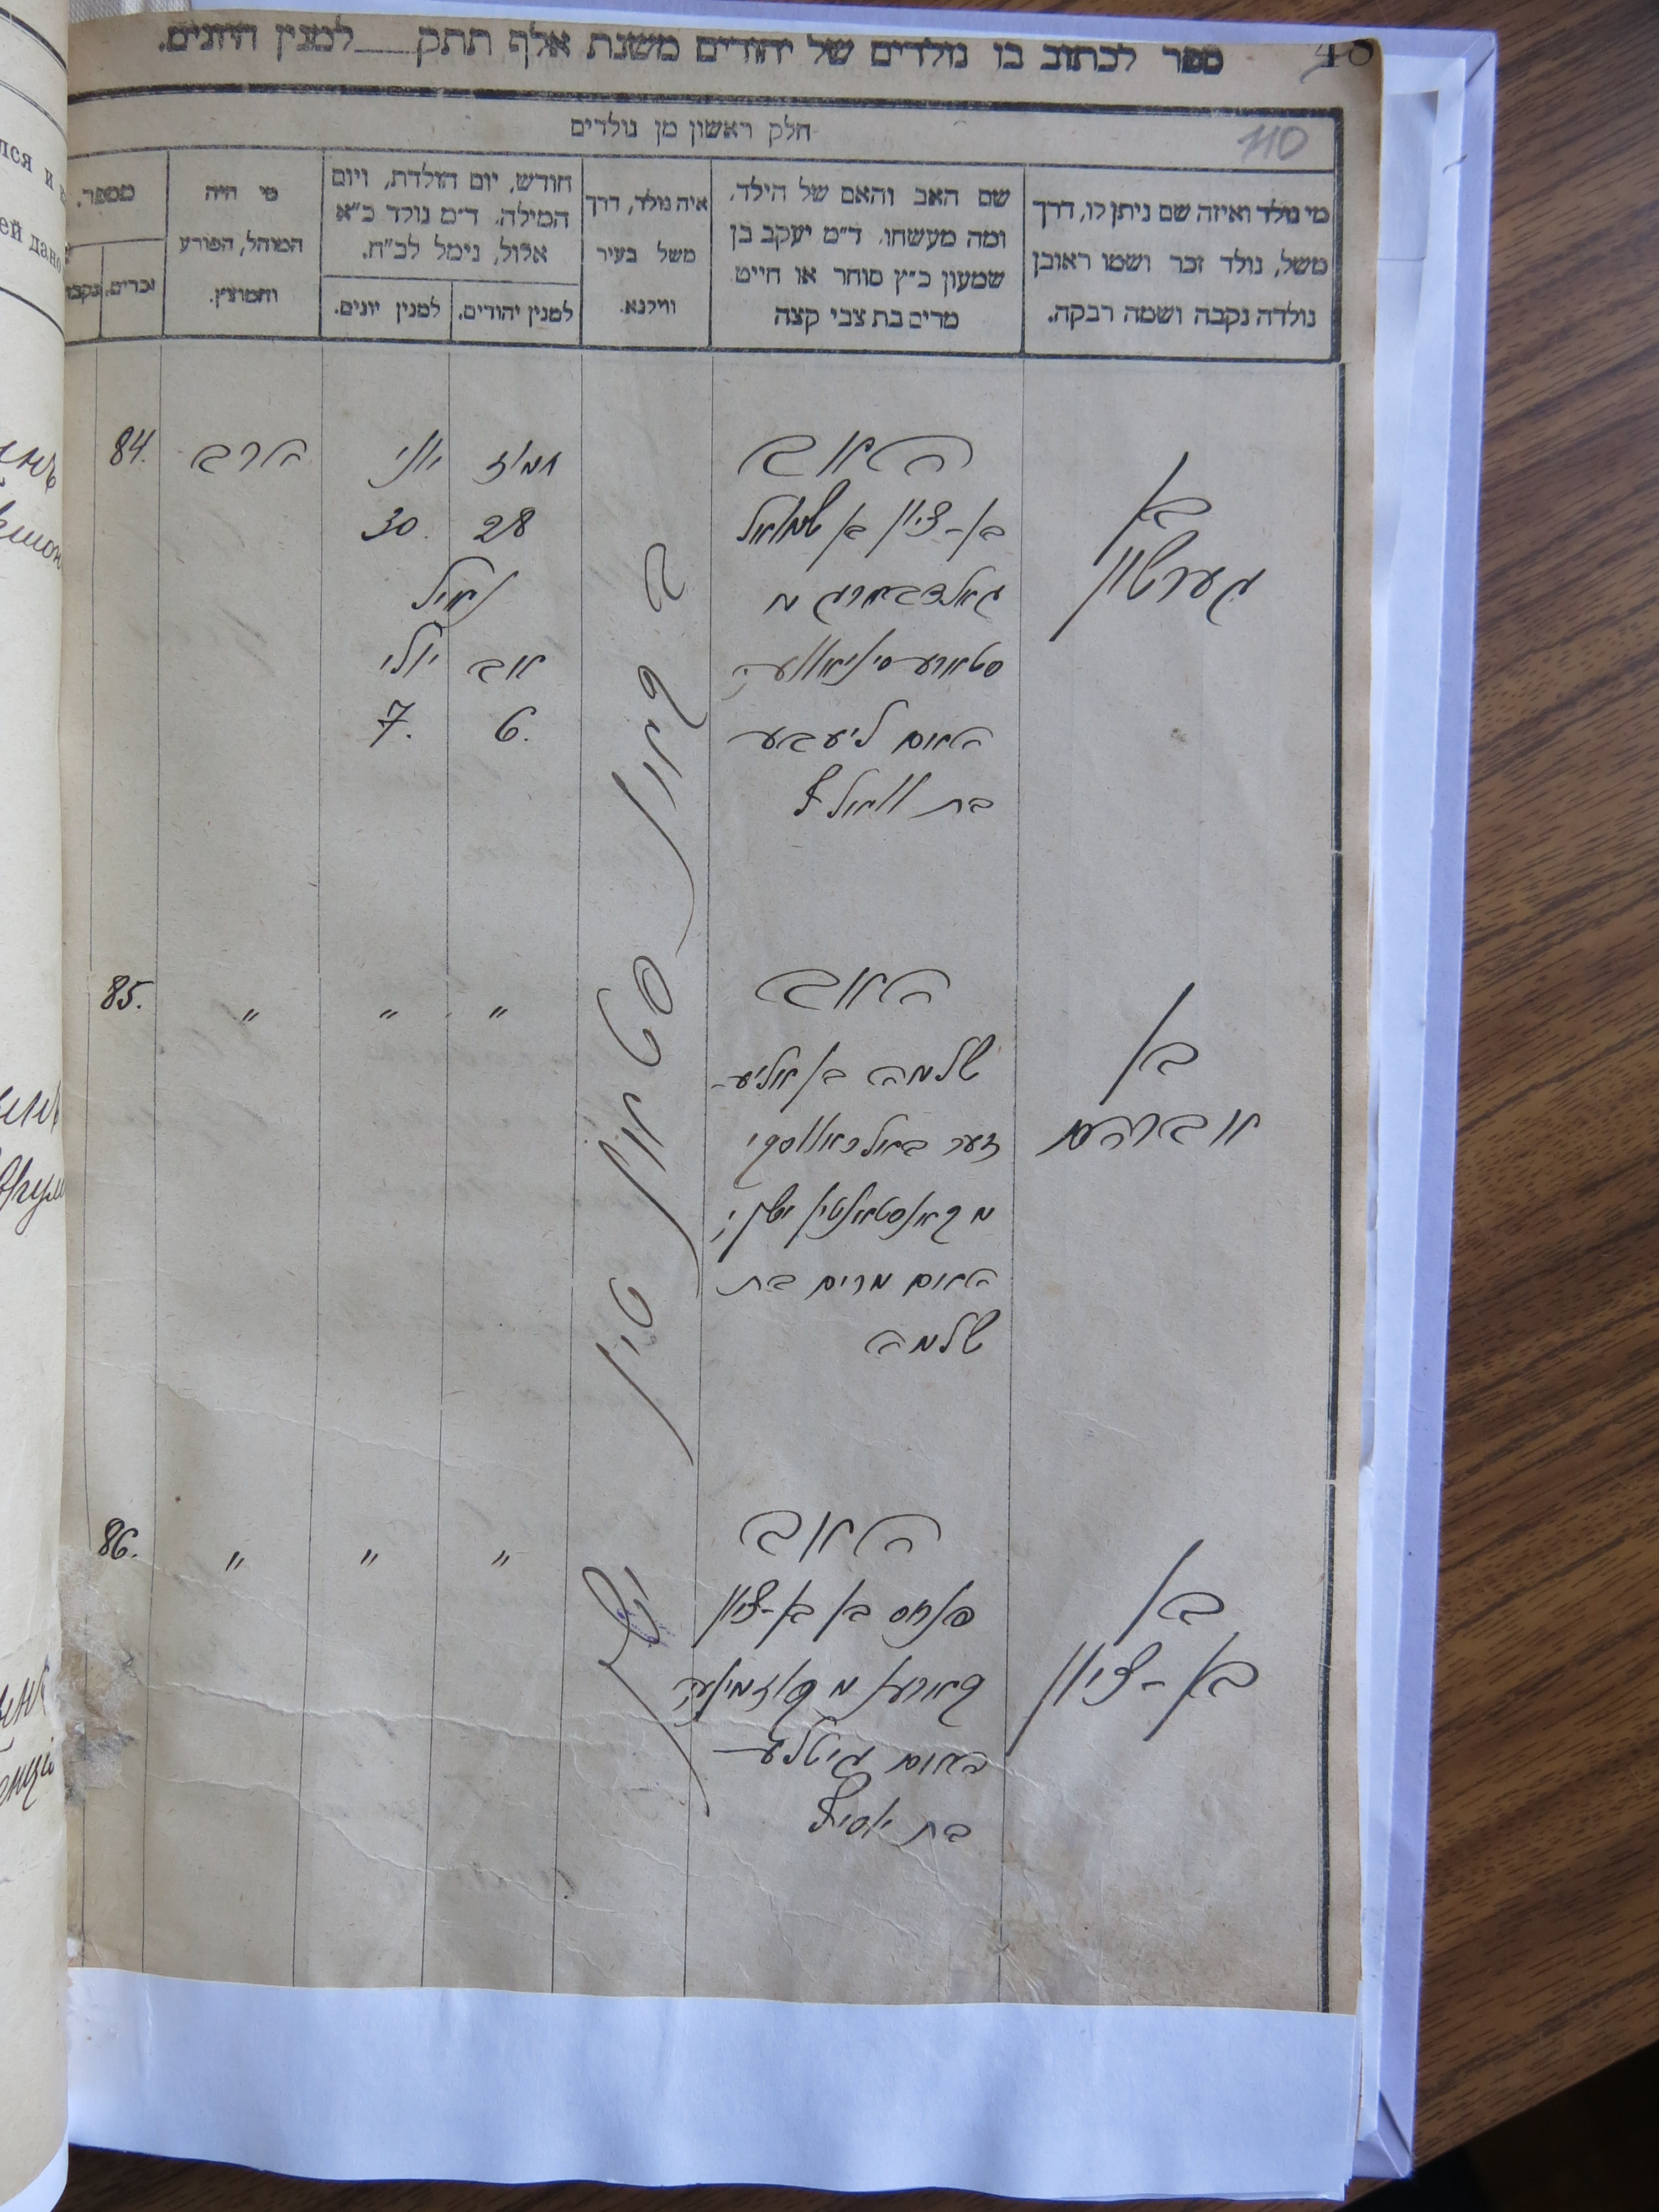 48
ספר לכתוב בו נולדים של יהודים משנת אלף תתק___ למנין היונים.
110
חלק ראשון מן נולדים
מי נולד ואיזה שם ניתן לו, דרך
משל, נולד זכר ושמו ראובן
נולדה נקבה ושמה רבקה.
שם האב והאם של הילד,
ומה מעשהו. ד״מ יעקב בן
שמעון כ״ץ סוחר או חייט
מרים בת צבי קצה
איה נולד, דרך
משל בעיר
ווילנא.
חודש, יום הולדת, ויום
המילה. ד״מ נולד כ״א
אלול, נימל לכ״ח.
למנין יהודים.
למנין יונים.
מי היה
המוהל, הפורע
והמוצץ.
מספר.
זכרים.
בן
גערשון
האב
בן-ציון בן שמואל
גאלדבערג מ
סטארע סיניאווע;
האם ליבע
בת וואלף
תמוז יוני
28 30.
נימול
אב יולי
6. 7.
הרב
84.
ה קאנסטאנטין ישן
בן
אברהם
האב
שלמה בן אליע-
זער
מ קאנסטאנטין ישן;
האם מרים בת
שלמה
" " "
85.
בן
בן-ציון
האב
פנחס בן בן-ציון
מ קוזמין;
האם גיטלע
בת יוסיף
" " "
86.